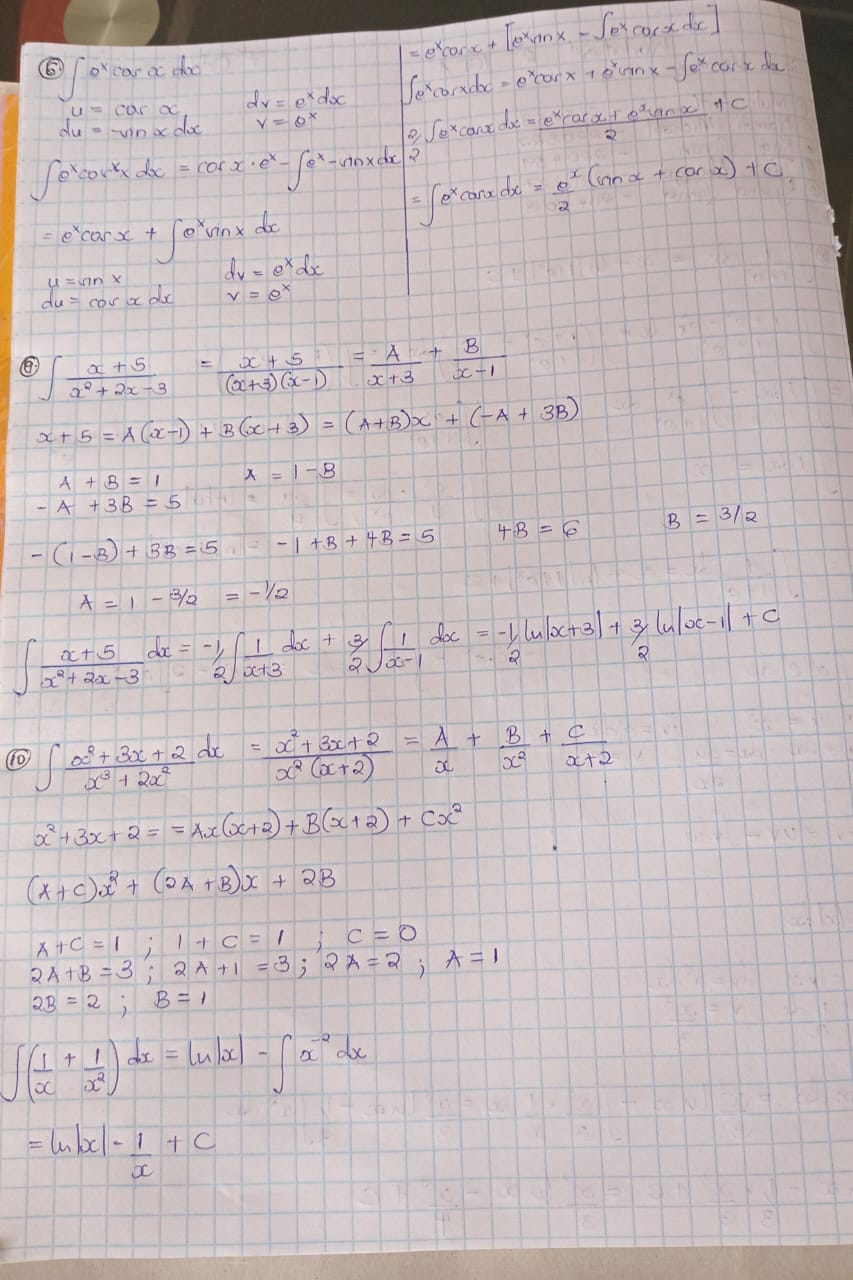 ⑥ ∫ eˣ cos x dx
u = cos x    dv = eˣ dx
du = -sin x dx    v = eˣ
∫ eˣ cos x dx = cos x · eˣ - ∫ eˣ - sin x dx
= eˣ cos x + ∫ eˣ sin x dx
u = sin x    dv = eˣ dx
du = cos x dx    v = eˣ
= eˣ cos x + [eˣ sin x - ∫ eˣ cos x dx]
∫ eˣ cos x dx = eˣ cos x + eˣ sin x - ∫ eˣ cos x dx
2/2 ∫ eˣ cos x dx = (eˣ cos x + eˣ sin x)/2 + C
= ∫ eˣ cos x dx = eˣ/2 (sin x + cos x) + C.
⑨ ∫ (x + 5)/(x² + 2x - 3) = (x + 5)/((x+3)(x-1)) = A/(x+3) + B/(x-1)
x + 5 = A(x-1) + B(x+3) = (A+B)x + (-A + 3B)
A + B = 1    A = 1 - B
- A + 3B = 5
-(1-B) + 3B = 5    -1 + B + 4B = 5    4B = 6    B = 3/2
A = 1 - 3/2 = -1/2
∫ (x+5)/(x² + 2x - 3) dx = -1/2 ∫ 1/(x+3) dx + 3/2 ∫ 1/(x-1) dx = -1/2 ln|x+3| + 3/2 ln|x-1| + C
⑩ ∫ (x² + 3x + 2)/(x³ + 2x²) dx = (x² + 3x + 2)/(x² (x+2)) = A/x + B/x² + C/(x+2)
x² + 3x + 2 = = Ax(x+2) + B(x+2) + Cx²
(A+C)x² + (2A+B)x + 2B
A+C = 1 ; 1 + C = 1 ; C = 0
2A+B = 3 ; 2A+1 = 3 ; 2A = 2 ; A = 1
2B = 2 ; B = 1
∫ (1/x + 1/x²) dx = ln|x| - ∫ x⁻² dx
= ln|x| - 1/x + C